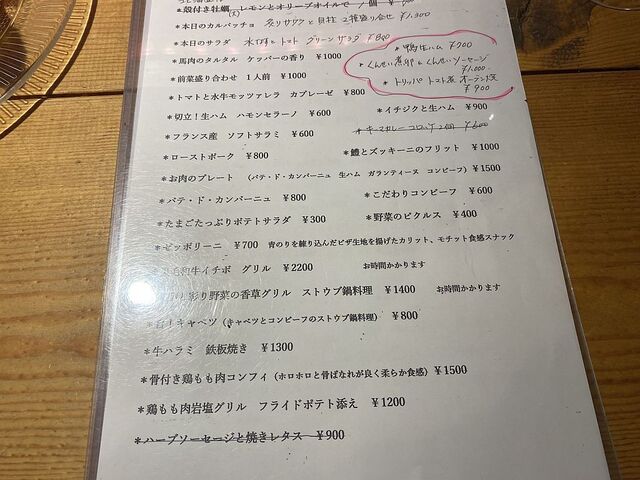 *殻付き牡蠣 レモンとオリーブオイルで 1個
*本日のカルパッチョ 炙りサワラと貝柱 2種盛り合せ ¥1,300
*本日のサラダ トマト グリーンサラダ ¥800
*鴨生ハム ¥700
*くんせい煮卵 & くんせいソーセージ
¥1,000
*馬肉のタルタル ケッパーの香り ¥1000
*トリッパ トマト煮 オーブン焼
¥900
*前菜盛り合わせ 1人前 ¥1000
*トマトと水牛モッツァレラ カプレーゼ ¥800
*イチジクと生ハム ¥900
*切立!生ハム ハモンセラーノ ¥600
*キーマカレーコロッケ 2個 ¥600
*フランス産 ソフトサラミ ¥600
*鱧とズッキーニのフリット ¥1000
*ローストポーク ¥800
*お肉のプレート (パテ・ド・カンパーニュ 生ハム ガランティーヌ コンビーフ) ¥1500
*パテ・ド・カンパーニュ ¥800
*こだわりコンビーフ ¥600
*たまごたっぷりポテトサラダ ¥300
*野菜のピクルス ¥400
*ゼッポリーニ ¥700 青のりを練り込んだピザ生地を揚げたカリット、モチット食感スナック
毛和牛イチボ グリル ¥2200 お時間かかります
彩り野菜の香草グリル ストウブ鍋料理 ¥1400 お時間かかります
!キャベツ (キャベツとコンビーフのストウブ鍋料理) ¥800
*牛ハラミ 鉄板焼き ¥1300
*骨付き鶏もも肉コンフィ (ホロホロと骨ばなれが良く柔らか食感) ¥1500
*鶏もも肉岩塩グリル フライドポテト添え ¥1200
*ハーブソーセージと焼きレタス ¥900